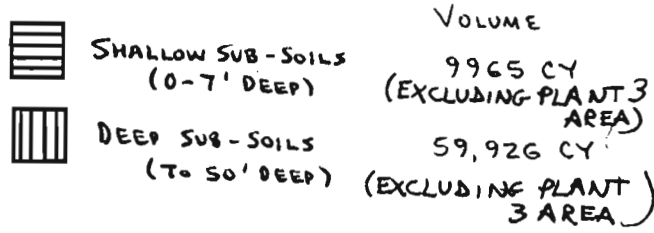 VOLUME
SHALLOW SUB-SOILS
(0-7' DEEP)
9965 CY
(EXCLUDING PLANT 3
AREA)
DEEP SUB-SOILS
(TO 50' DEEP)
59,926 CY
(EXCLUDING PLANT
3 AREA)